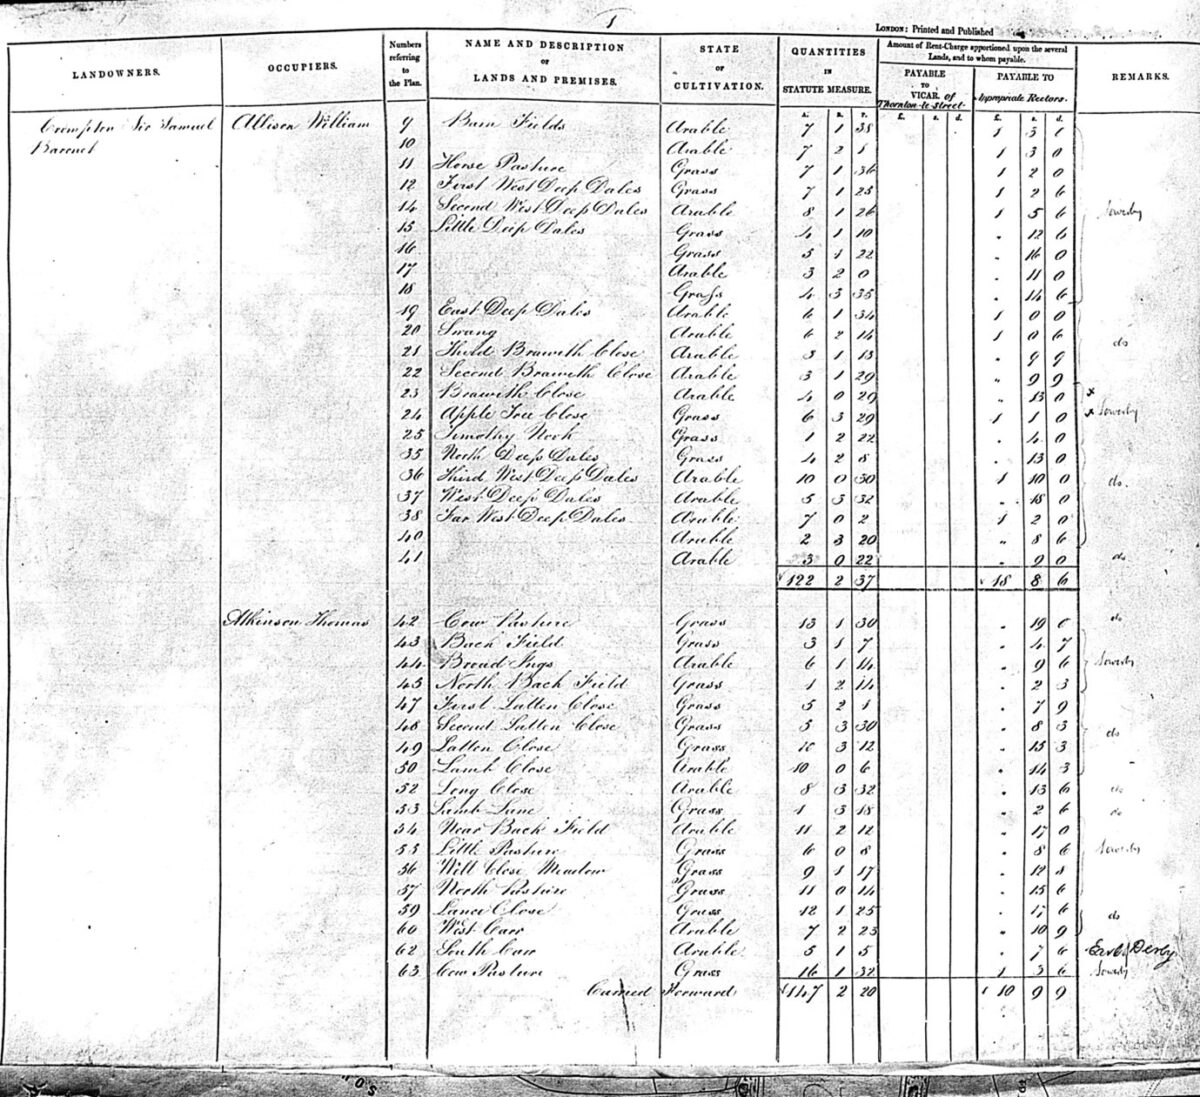 1
LONDON: Printed and Published
LANDOWNERS. OCCUPIERS. Numbers referring to the Plan. NAME AND DESCRIPTION OF LANDS AND PREMISES. STATE OF CULTIVATION. QUANTITIES IN STATUTE MEASURE. Amount of Rent-Charge apportioned upon the several Lands, and to whom payable. REMARKS.
PAYABLE TO VICAR. of Thornton-le-Street PAYABLE TO Appropriate Rectors.
A. R. P. £. s. d. £. s. d.
Crompton Sir Samuel Allison William 9 Barn Fields Arable 7 1 38 1 3 1
Baronet 10 Arable 7 2 1 1 3 0
11 Horse Pasture Grass 7 1 36 1 2 0
12 First West Deep Dales Grass 7 1 25 1 2 6
14 Second West Deep Dales Arable 8 1 26 1 5 6 Sowerby
15 Little Deep Dales Grass 4 1 10 " 12 6
16 Grass 5 1 22 " 16 0
17 Arable 3 2 0 " 11 0
18 Grass 4 3 35 " 14 6
19 East Deep Dales Arable 6 1 34 1 0 0
20 Swang Arable 6 2 14 1 0 6 do
21 Third Braweth Close Arable 3 1 13 " 9 9
22 Second Braweth Close Arable 3 1 29 " 9 9
23 Braweth Close Arable 4 0 29 " 13 0 x
24 Apple Tree Close Grass 6 3 29 1 1 0 x Sowerby
25 Timothy Nook Grass 1 2 22 " 4 0
35 North Deep Dales Grass 4 2 8 " 13 0
36 Third West Deep Dales Arable 10 0 30 1 10 0 do.
37 West Deep Dales Arable 5 3 32 " 18 0
38 Far West Deep Dales Arable 7 0 2 1 2 0
40 Arable 2 3 20 " 8 6
41 Arable 3 0 22 " 9 0 do
122 2 37 18 8 6
Atkinson Thomas 42 Cow Pasture Grass 13 1 30 " 19 0 do
43 Back Field Grass 3 1 7 " 4 7
44 Broad Ings Arable 6 1 14 " 9 6 Sowerby
45 North Back Field Grass 1 2 14 " 2 3
47 First Latten Close Grass 5 2 1 " 7 9
48 Second Latten Close Grass 5 3 30 " 8 3 do
49 Latten Close Grass 10 3 12 " 15 3
50 Lamb Close Arable 10 0 6 " 14 3
52 Long Close Arable 8 3 32 " 13 6 do
53 Lamb Lane Grass 1 3 18 " 2 6 do
54 Near Back Field Arable 11 2 12 " 17 0
55 Little Pasture Grass 6 0 8 " 8 6 Sowerby
56 Well Close Meadow Grass 9 1 17 " 12 8
57 North Pasture Grass 11 0 14 " 15 6
59 Lane Close Grass 12 1 25 " 17 6 do
60 West Carr Arable 7 2 23 " 10 9
62 South Carr Arable 5 1 5 " 7 6 Earl Derby
63 Cow Pasture Grass 16 1 32 1 3 6 Sowerby
Carried Forward £147 2 20 £ 10 9 9